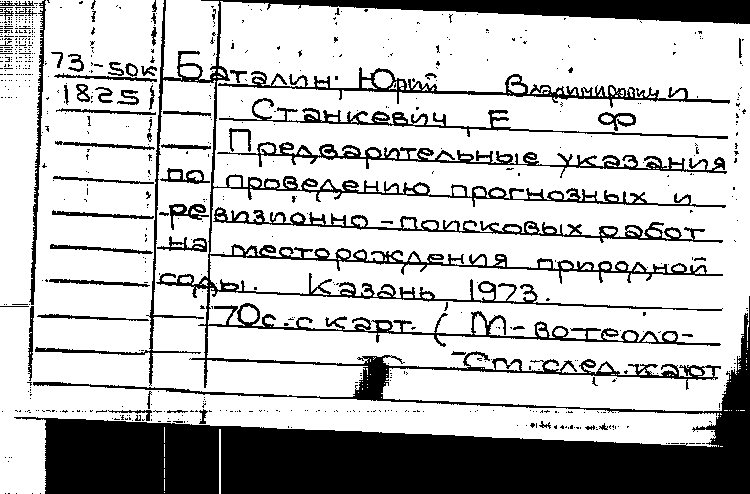 73-50к Баталин, Юрий Владимирович и
1825
Станкевич, Е Ф
Предварительные указания
по проведению прогнозных и
ревизионно-поисковых работ
на месторождения природной
соды. Казань, 1973.
70с. с карт. (М-во геоло-
См. след. карт